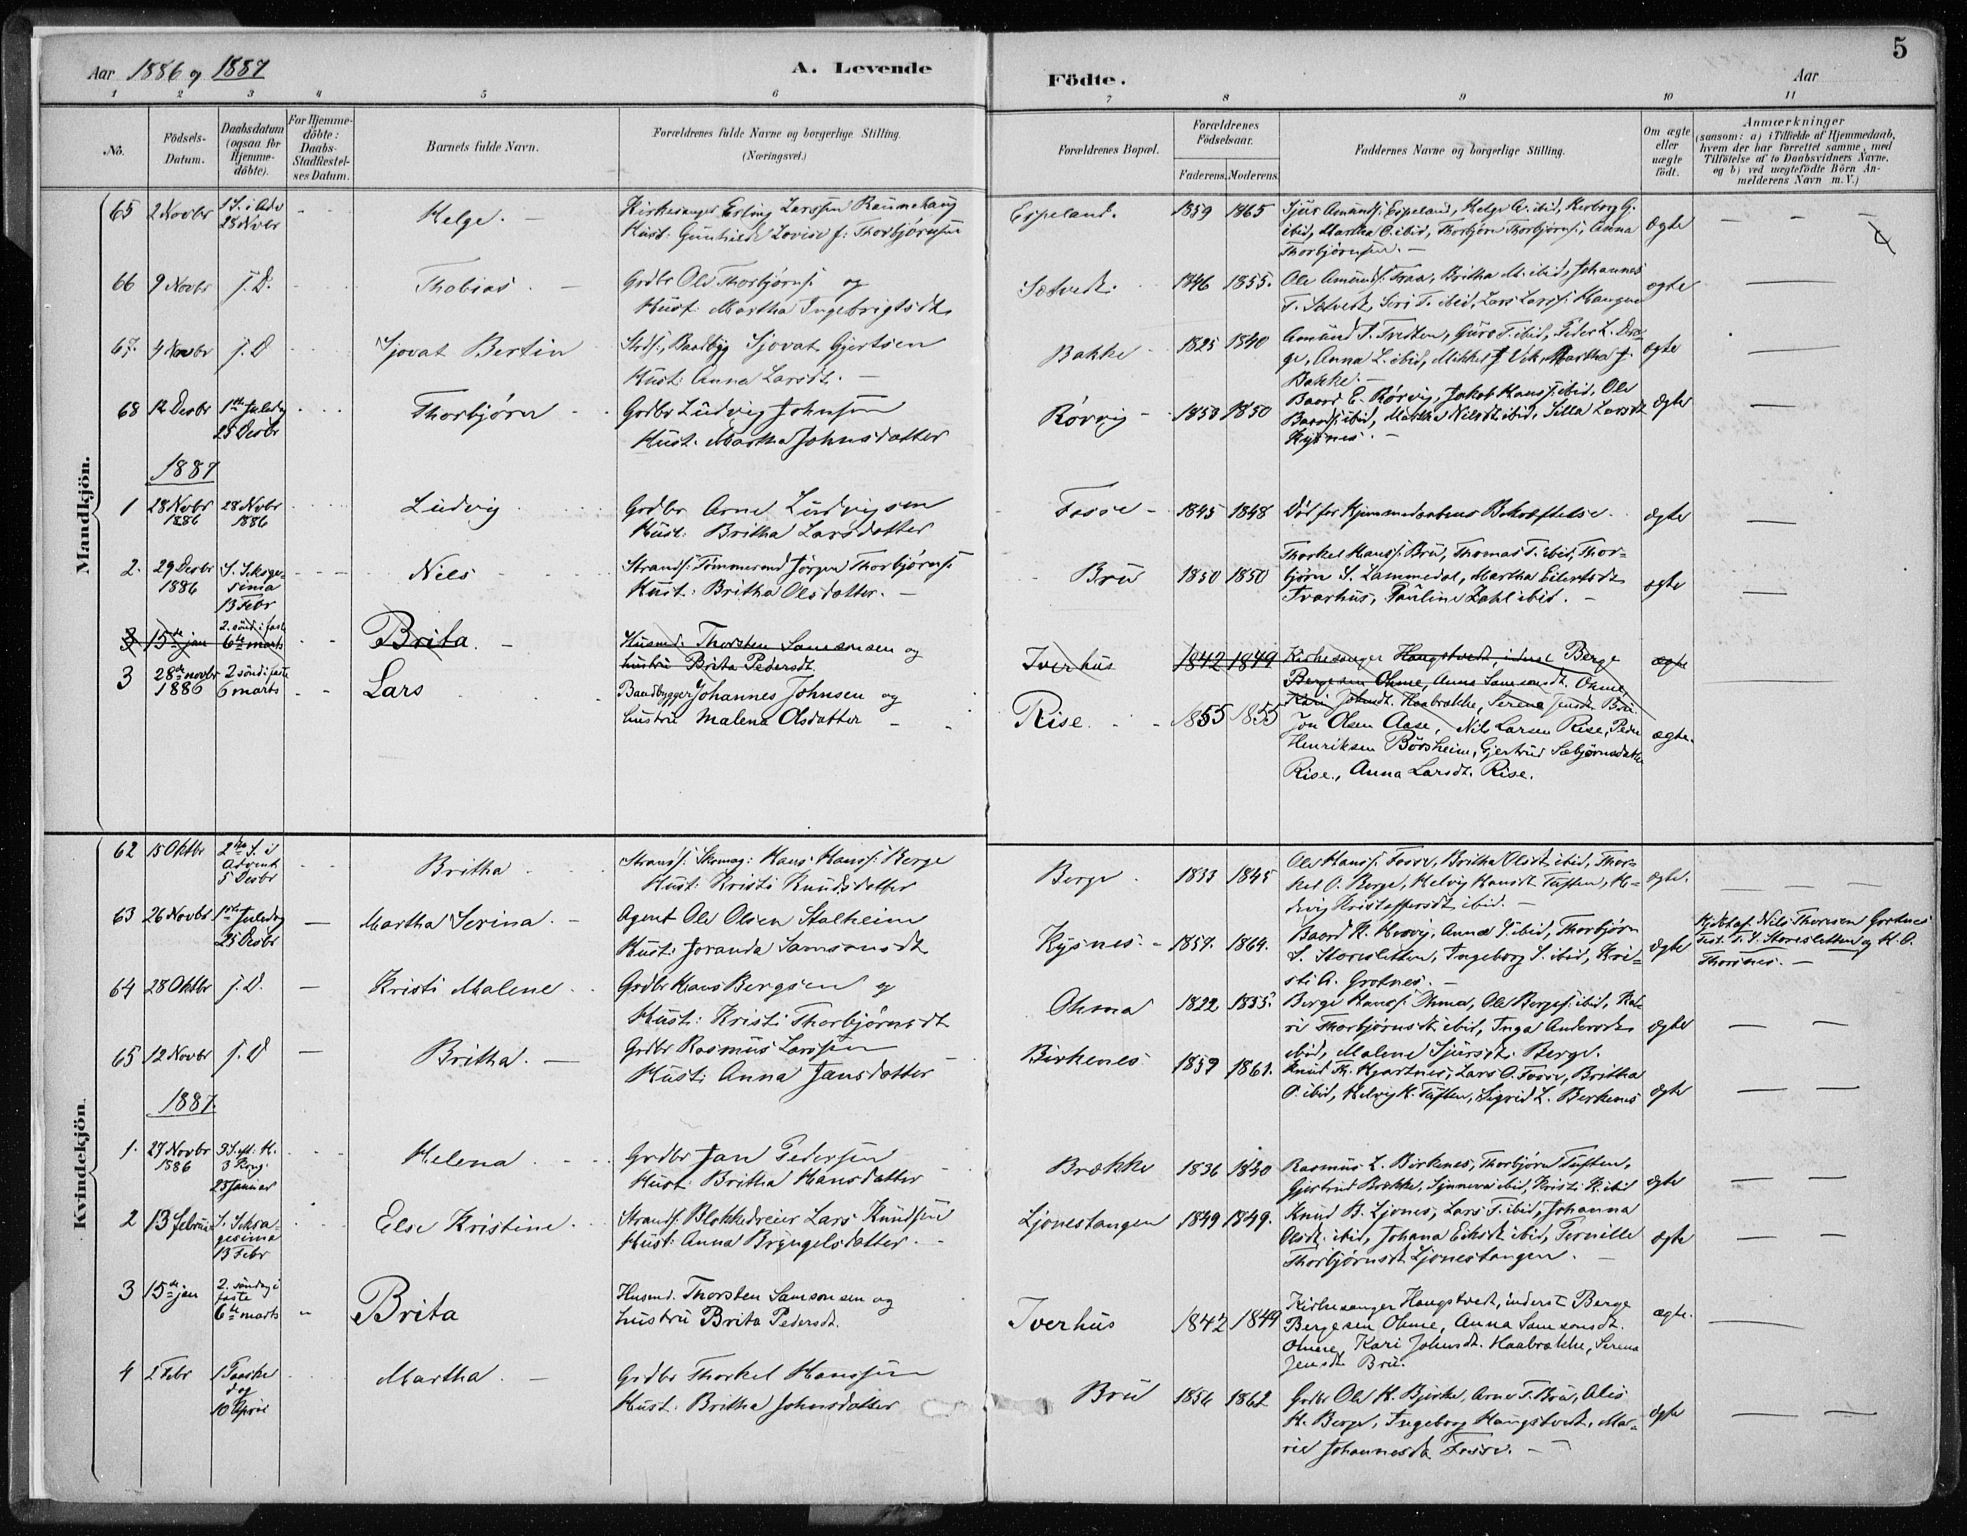 5
Aar 1886 og 1887
A. Levende
Fødte.
Aar
1 2 3 4 5 6 7 8 9 10 11
No.
Födsels-Datum.
Daabsdatum (ogsaa for Hjemme-döbte).
For Hjemme-döbte: Daabs-Stadfæstel-ses Datum.
Barnets fulde Navn.
Forældrenes fulde Navne og borgerlige Stilling.
(Næringsvei.)
Forældrenes Bopæl.
Forældrenes Födselsaar.
Faderens. Moderens.
Faddernes Navne og borgerlige Stilling.
Om ægte eller uægte födt.
Anmærkninger
(saasom: a) i Tilfælde af Hjemmedaab,
hvem der har forrettet samme, med
Tilföielse af to Daabsvidners Navne,
og b) ved uægtefödte Börn An-
melderens Navn m. V.)
Mandkjön.
65 2 Novbr 1 S. i Adv 28 Novbr
Helge.
Kirkesanger Erling Larssen Raunehaug
Hust: Gunhilde Lovise f. Thorbjørnsen
Espeland. 1859 1865
Sjur Amunds. Espeland, Helge A. ibid, Herborg G.
ibid, Martha O. ibid, Thorbjørn Thorbjørns., Anna
Thorbjørnsen.
Ægte
66 9 Novbr j. D.
Thobias.
Grdbr Ole Thorbjørns. og
Hust: Martha Ingebrigtsdt.
Sætvedt. 1846 1855.
Ole Amunds. Traa, Britha M. ibid, Johannes
T. Sætvedt, Siri T. ibid, Lars Larss. Haugen
ægte
67. 4 Novbr j. D
Sjovat Bertin
Strds., Baadbyg Sjovat Gjertsen
Hust: Anna Larsdt.
Bakke 1825 1840
Amund T. Tvedten, Guro T. ibid, Peder L. Dra-
ge, Anna L. ibid, Mikkel J. Vik, Martha J.
Bakke.
ægte
68 12 Decbr 1ste Juledag 25 Decbr
Thorbjørn
Grdbr Ludvig Johnsen
Hust: Martha Johnsdatter
Røvvig 1850 1850
Baard E. Rørvig, Jakob Hanss. ibid, Ole
Baards. ibid, Martha Nilsdt. ibid, Silla Larsdt.
Kysnes.
Ægte
1887
1 28 Novbr 1886 28 Novbr 1886
Ludvig
Grdbr Arne Ludvigsen
Hust: Britha Larsdatter
Fosse 1845 1848
Død før Hjemmedaabens Bekræftelse.
ægte
2. 29 Decbr 1886 S. Seksagesima 13 Febr
Nils
Strands. Tømmermd Jørgen Thorbjørns.
Hust: Britha Olsdatter.
Bru 1850 1850
Thorkel Hanss. Bru, Thomas T. ibid, Thor-
bjørn S. Lammedal, Martha Eilertsdt.
Tvarhus, Pauline Zahl ibid.
ægte
3 15de jan 2. sönd. i faste 6te marts
Brita
Husmd. Thorsten Samsonsen og
hustru Brita Pedersdt.
Iverhus 1842 1849
Kirkesanger Haugstvedt, inderst Berge
Bergesen Ohme, Anna Samsonsdt. Ohme,
Kari Johnsdt. Haabrække, Serena Jensdt. Bru.
ægte
3 28de novbr 1886 2 sönd i faste 6 marts
Lars
Baadbygger Johannes Johnsen og
hustru Malena Olsdatter
Rise. 1855 1855
Jon Olsen Aase, Nils Larsen Rise, Peder
Henriksen Börsheim, Gjertrud Sæbjørnsdatter
Rise., Anna Larsdt. Rise.
ægte.
Kvindekjön.
62 15 Oktbr 2den S. i Advent 5 Decbr
Britha
Strands. Skomag: Hans Hanss. Berge
Hust: Kristi Knudsdatter
Berge. 1833 1845
Ole Hanss. Fosse, Britha Olsdt. ibid, Thor-
kel O. Berge, Helvig Hansdt. Tuften, He-
dvig Kristoffersdt. ibid.
ægte.
63 26 Novbr 1ste Juledag 25 Decbr
Martha Serina.
Agent Ole Olsen Stalheim
Hust: Joranda Samsonsdt
Kysnes. 1857. 1864.
Baard K. Hvovig, Anna S. ibid, Thorbjørn
S. Storesletten, Ingeborg S. ibid, Kri-
sti A. Grotnes.
Ægte
Hj. døbt af Nils Thoresen Grotnes
Test. T. S. Storesletten og H. O.
Thorsnes.
64 28 Oktbr j. D.
Kristi Malene
Grdbr Hans Bergsen og
Hust: Kristi Thorbjørnsdt
Ohma 1822 1835.
Berge Hanss. Ohma, Ole Berges. ibid, Ka-
ri Thorbjørnsdt. ibid, Inga Andersdt.
ibid, Malene Sjursdt. Berge.
ægte
65 12 Novbr j. D
Britha.
Grdbr Rasmus Larssen
Hust: Anna Jansdatter
Birkenes 1859 1861.
Knut Th. Hjartnes, Lars O. Fosse, Britha
O. ibid, Helvig K. Tuften, Sigrid L. Berkenes
ægte
1887.
1. 27 Novbr 1886 3 S. eft. H. 3 Kong. 23 Januar
Helena
Grdbr Jan Pedersen
Hust: Britha Hansdatter
Brække 1836 1840
Rasmus L. Birkenes, Thorbjørn Tuften,
Gjertrud Brække, Synneva ibid, Kristi K. ibid
ægte
2 13 Februar S. Seksagesima 13 Febr
Else Kristine
Strands. Blokkedreier Lars Knudsen
Hust: Anna Bryngelsdatter
Ljonestangen 1849 1849.
Knud B. Ljones, Lars T. ibid, Johanna
Olsdt. ibid, Johana Eiksdt. ibid, Pernille
Thorbjørnsdt. Ljonestangen.
ægte
3 15de jan 2. söndag i faste 6te marts
Brita
Husmd. Thorsten Samsonsen og
hustru Brita Pedersdt.
Iverhus 1842 1849
Kirkesanger Haugstvedt, inderst Berge
Bergesen Ohme, Anna Samsonsdt.
Ohme, Kari Johnsdt. Haabrække, Serena
Jensdt Bru.
ægte.
4 2 Febr 1 Paaske dag 10 April
Martha
Grdbr Thorkel Hanssen
Hust: Britha Johnsdatter
Bru 1856 1862
Grdbr Ole H. Bjerke, Arne T. Bru, Alis
H. Berge, Ingeborg Haugstvedt, Mar-
rie Johannesdt. Fosse.
ægte